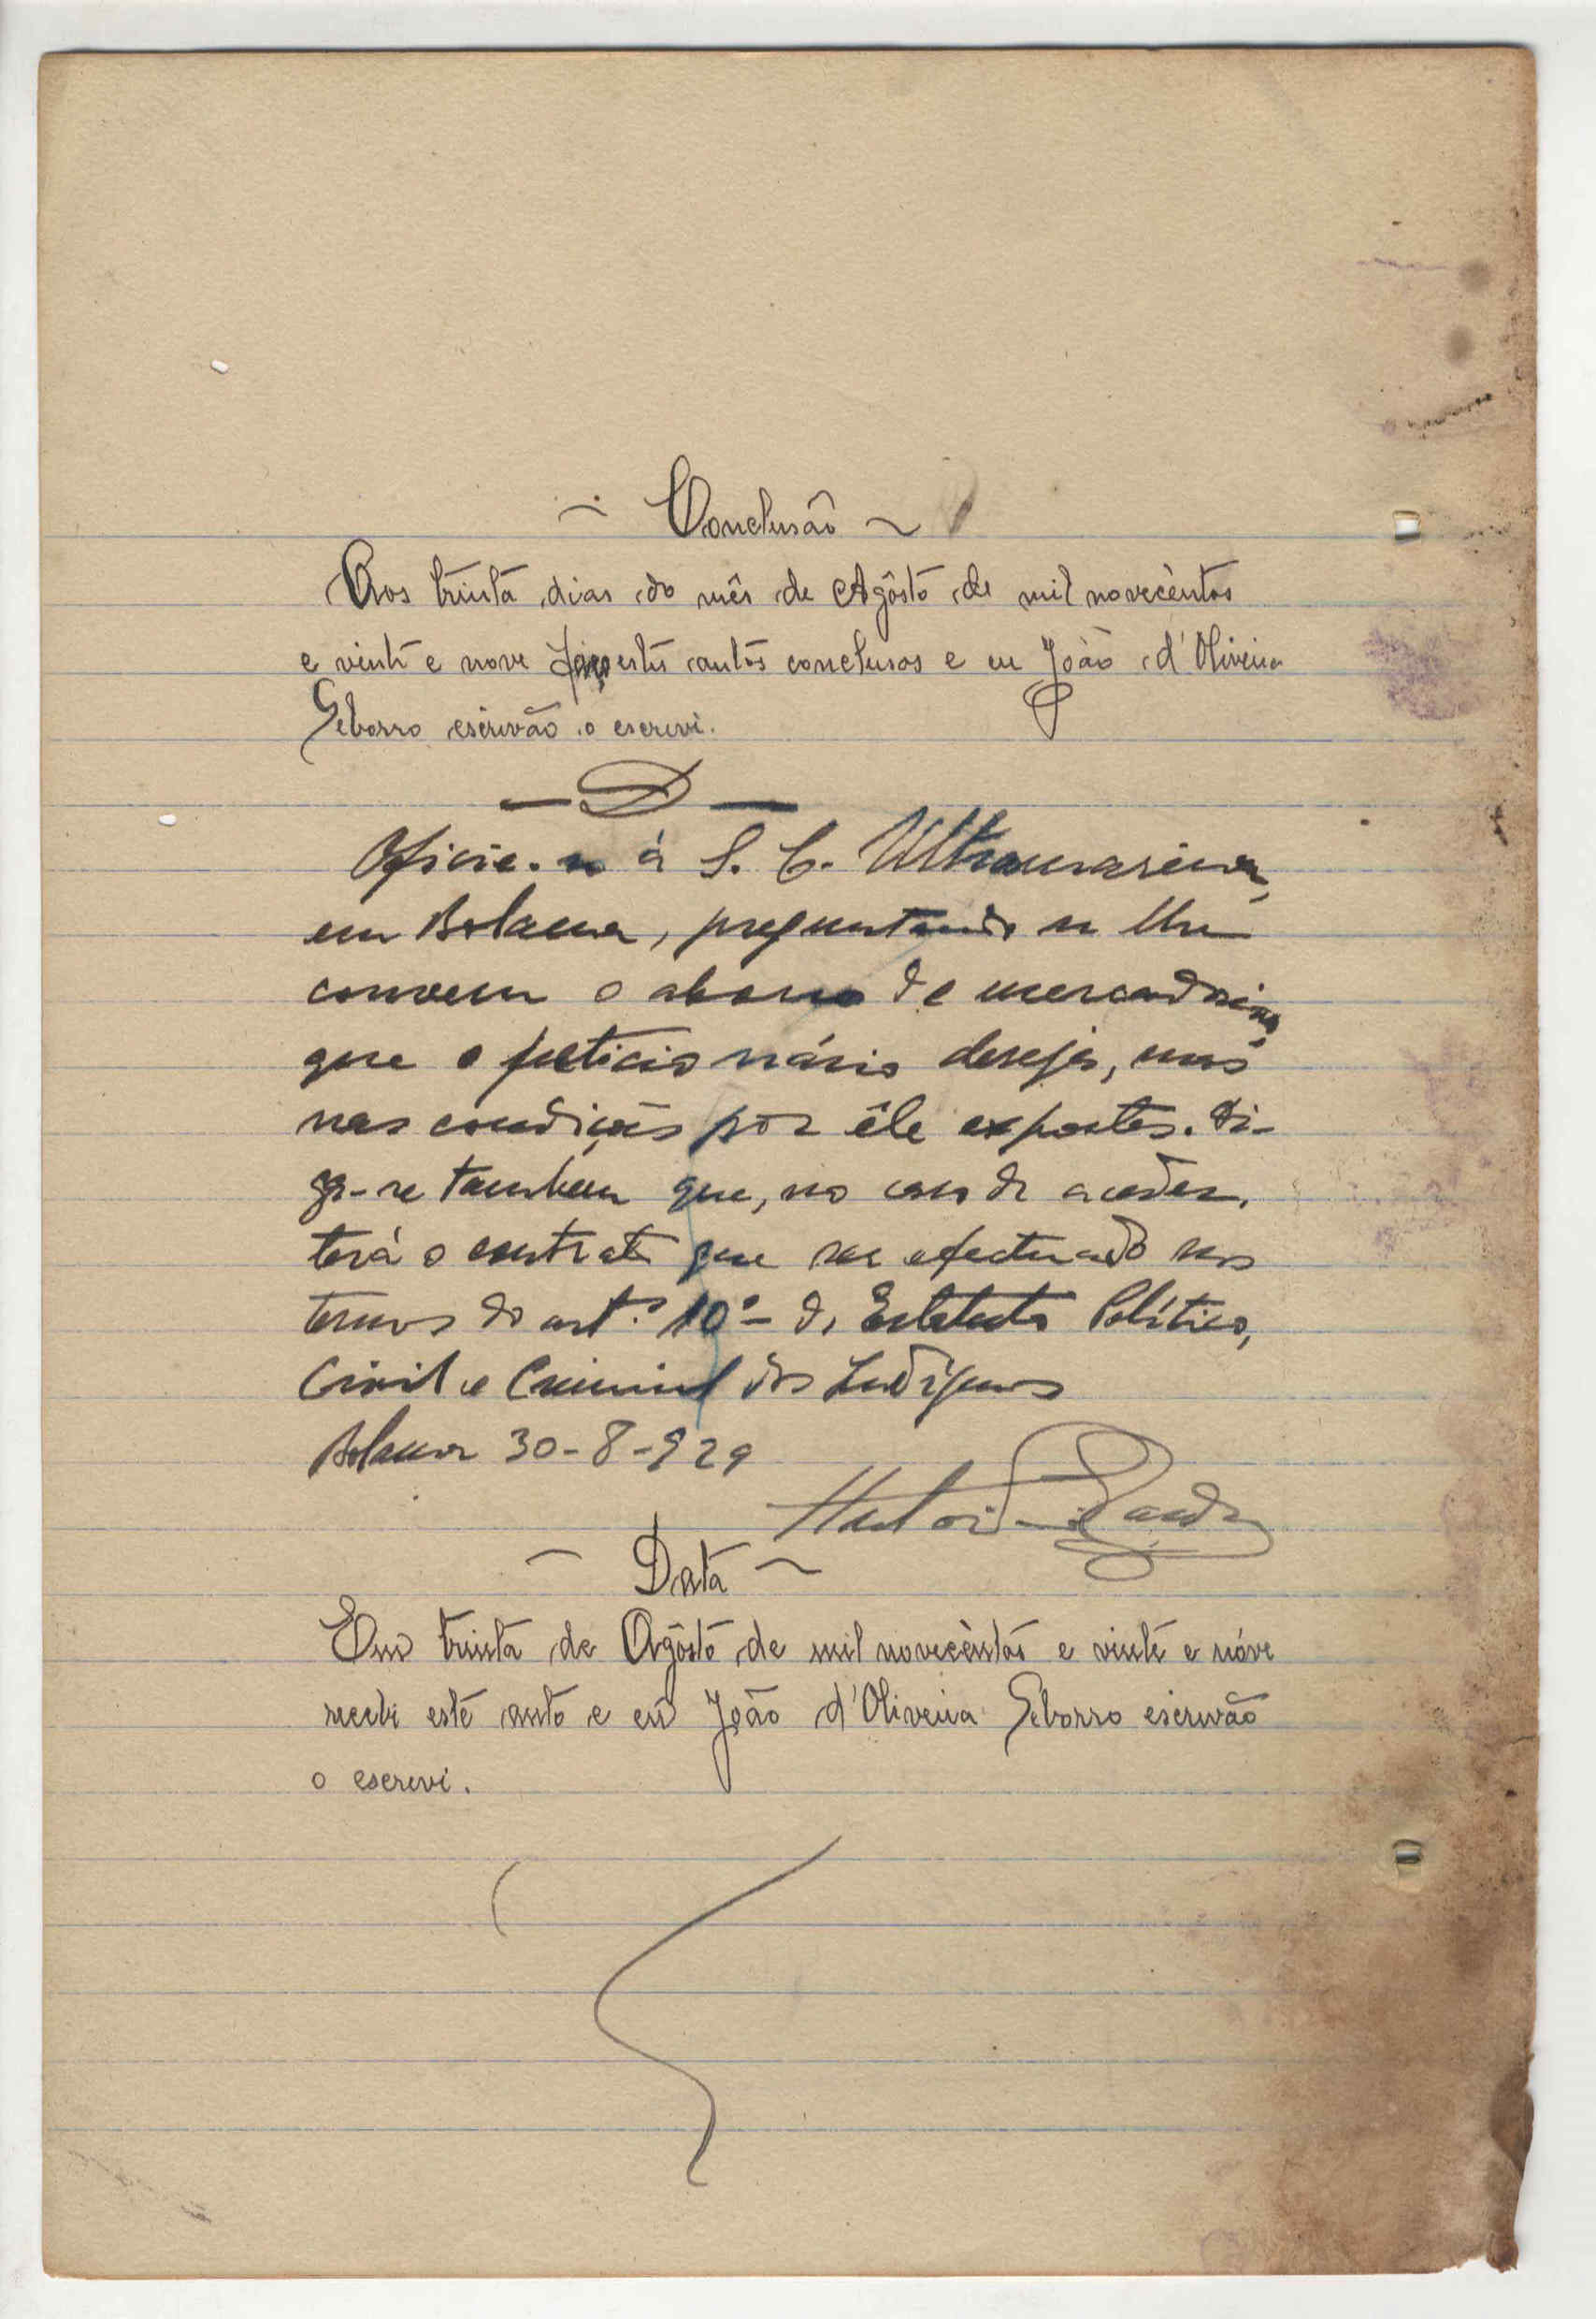 Conclusão
Aos trinta dias do mês de Agôsto de mil novecèntos
e vinte e nove faço estes autos conclusos e eu João d'Oliveira
Seborro escrivão o escrevi.
— D —
Oficie-se à S. C. Ultramarina,
em Bolama, preguntando se lhe
convem o abono de mercadorias
que o peticionário deseja, mas
nas condições por êle expostas. Di-
ga-se tambem que, no caso de aceder,
terá o contrato que ser efectuado nos
termos do art.º 10º - do Estatuto Político,
Civil e Criminal dos Indígenas
Bolama 30-8-929
Data
Em trinta de Agôsto de mil novecèntos e vinte e nóve
recebi este auto e eu João d'Oliveira Seborro escrivão
o escrevi.